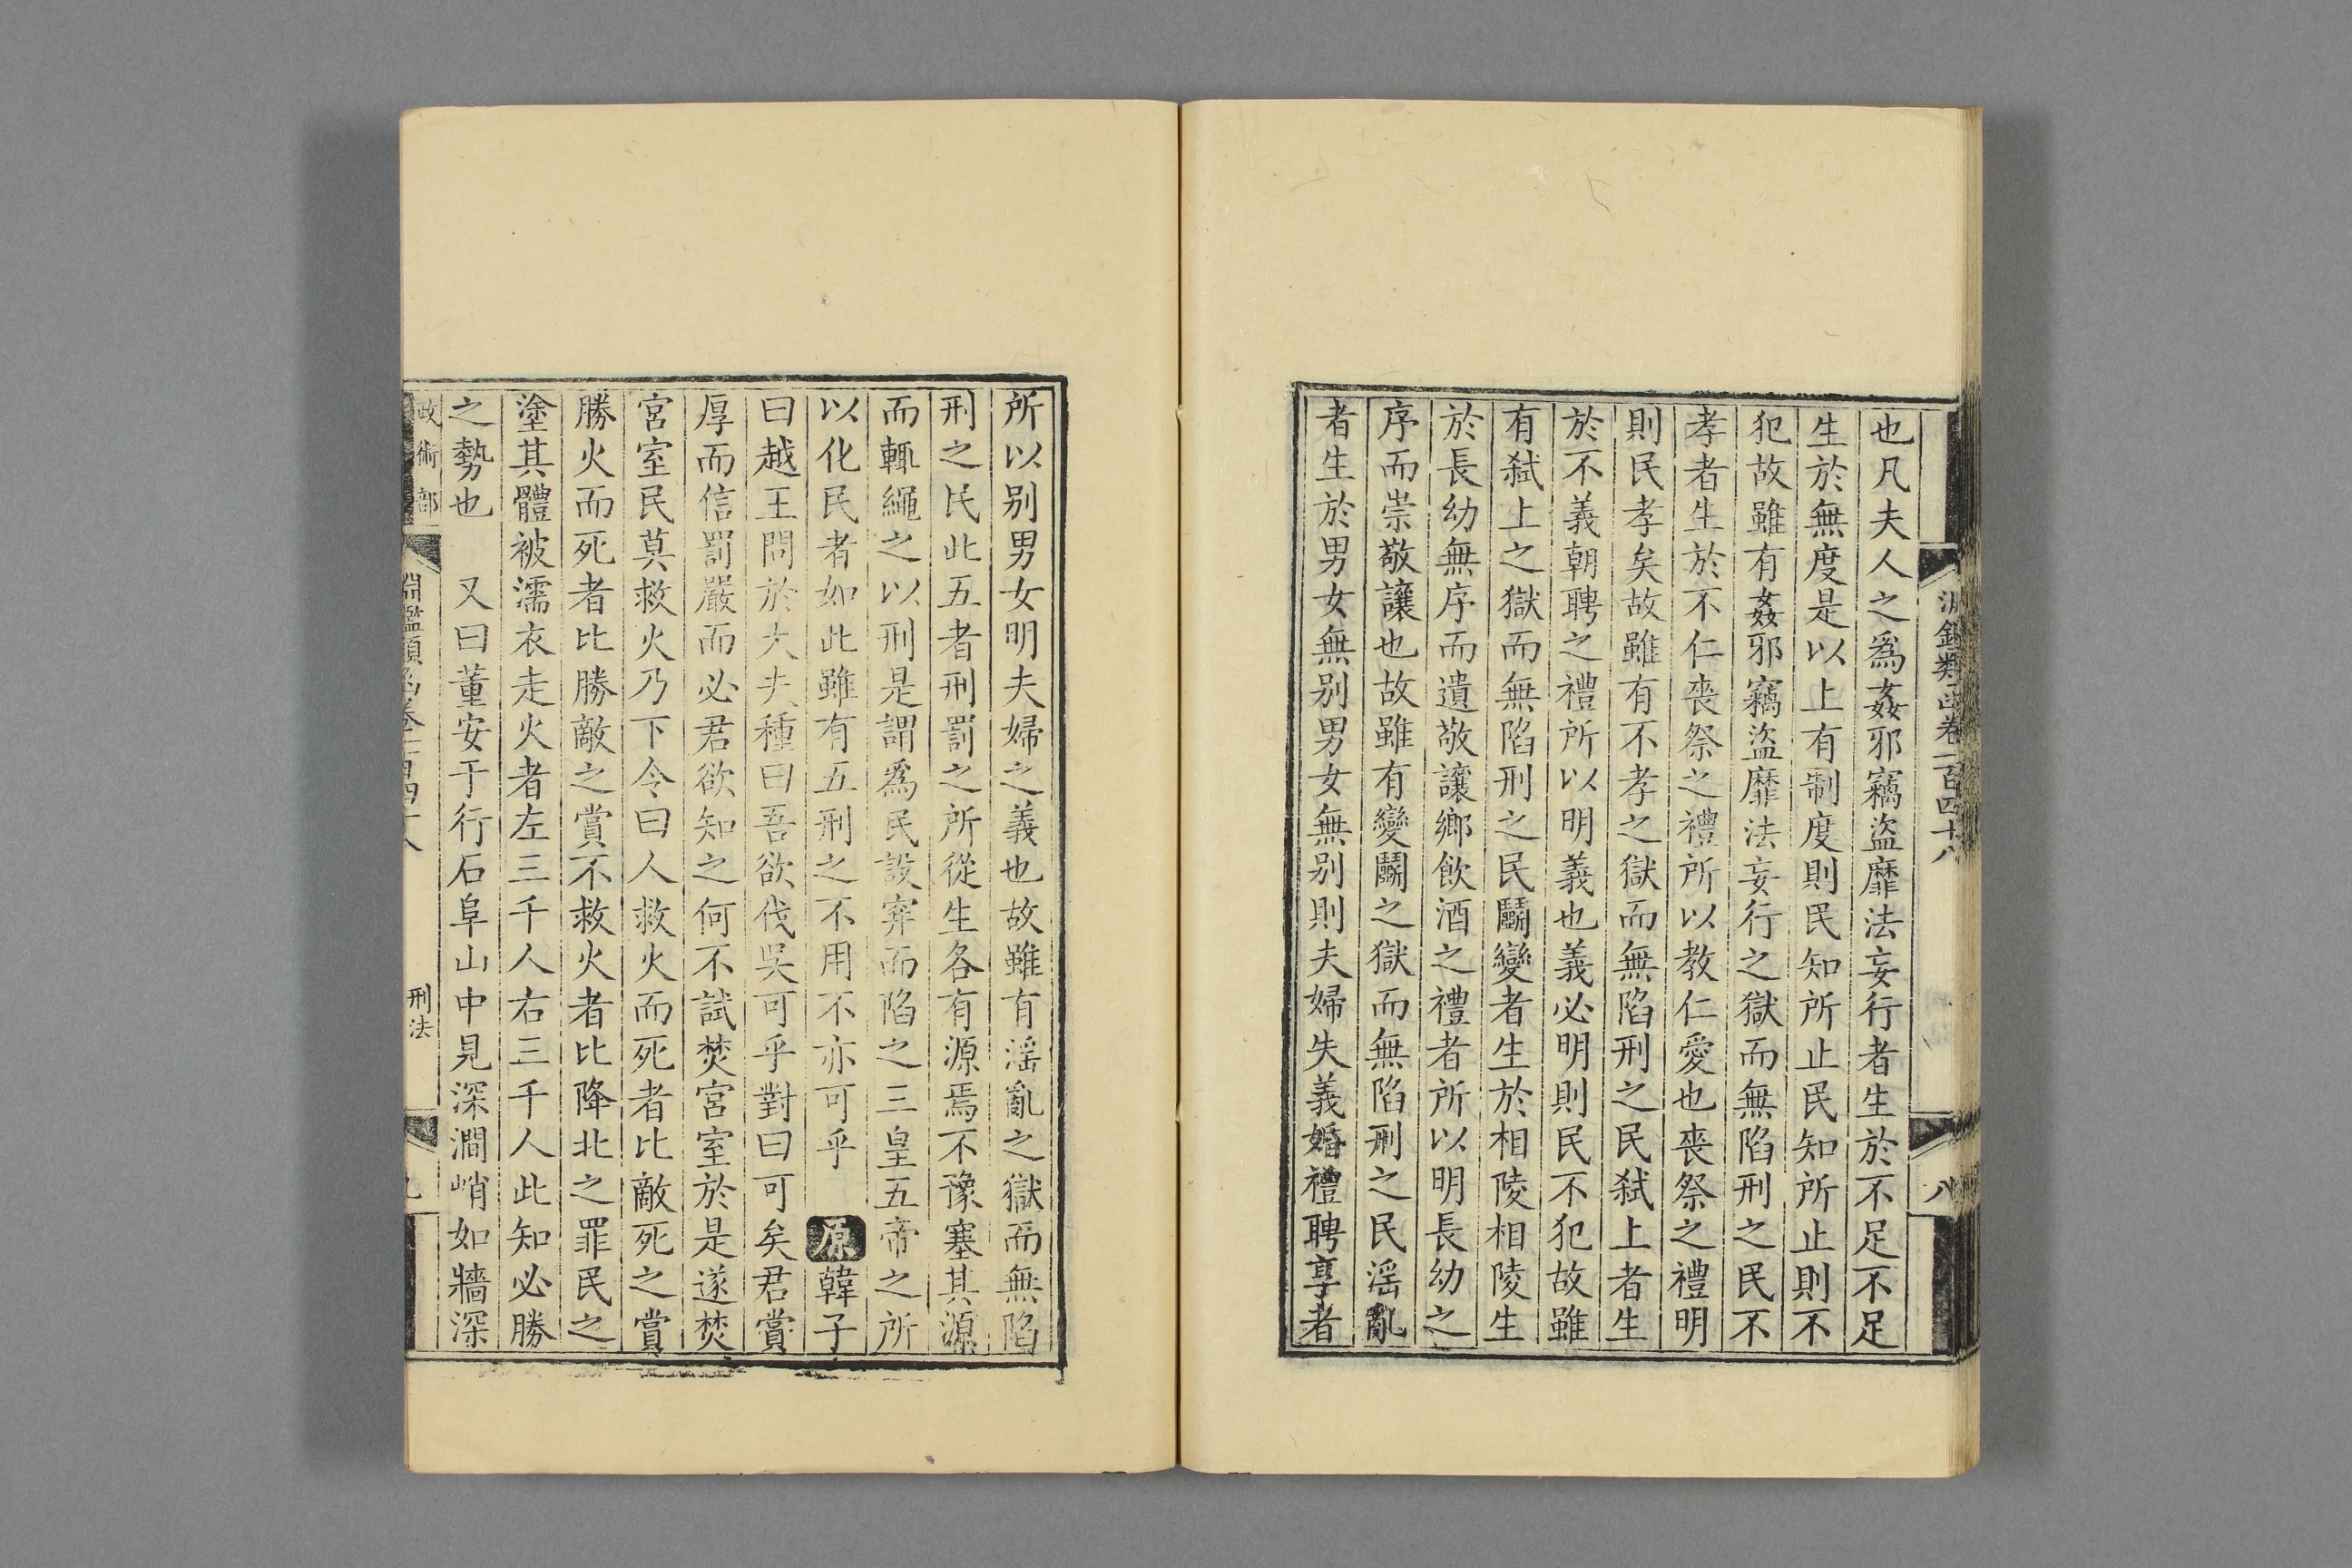 淵鑑類函卷一百四十八
八
也凡夫人之爲姦邪竊盜靡法妄行者生於不足不足
生於無度是以上有制度則民知所止民知所止則不
犯故雖有姦邪竊盜靡法妄行之獄而無陷刑之民不
孝者生於不仁喪祭之禮所以教仁愛也喪祭之禮明
則民孝矣故雖有不孝之獄而無陷刑之民弑上者生
於不義朝聘之禮所以明義也義必明則民不犯故雖
有弑上之獄而無陷刑之民鬬變者生於相陵相陵生
於長幼無序而遺敬讓鄉飲酒之禮者所以明長幼之
序而崇敬讓也故雖有變鬬之獄而無陷刑之民淫亂
者生於男女無别男女無别則夫婦失義婚禮聘享者
所以别男女明夫婦之義也故雖有淫亂之獄而無陷
刑之民此五者刑罰之所從生各有源焉不豫塞其源
而輒繩之以刑是謂爲民設穽而陷之三皇五帝之所
以化民者如此雖有五刑之不用不亦可乎 原韓子
曰越王問於大夫種曰吾欲伐吳可乎對曰可矣君賞
厚而信罰嚴而必君欲知之何不試焚宮室於是遂焚
宮室民莫救火乃下令曰人救火而死者比敵死之賞
勝火而死者比勝敵之賞不救火者比降北之罪民之
塗其體被濡衣走火者左三千人右三千人此知必勝
之勢也 又曰董安于行石阜山中見深澗峭如牆深
政術部 淵鑑類函卷一百四十八 刑法 九